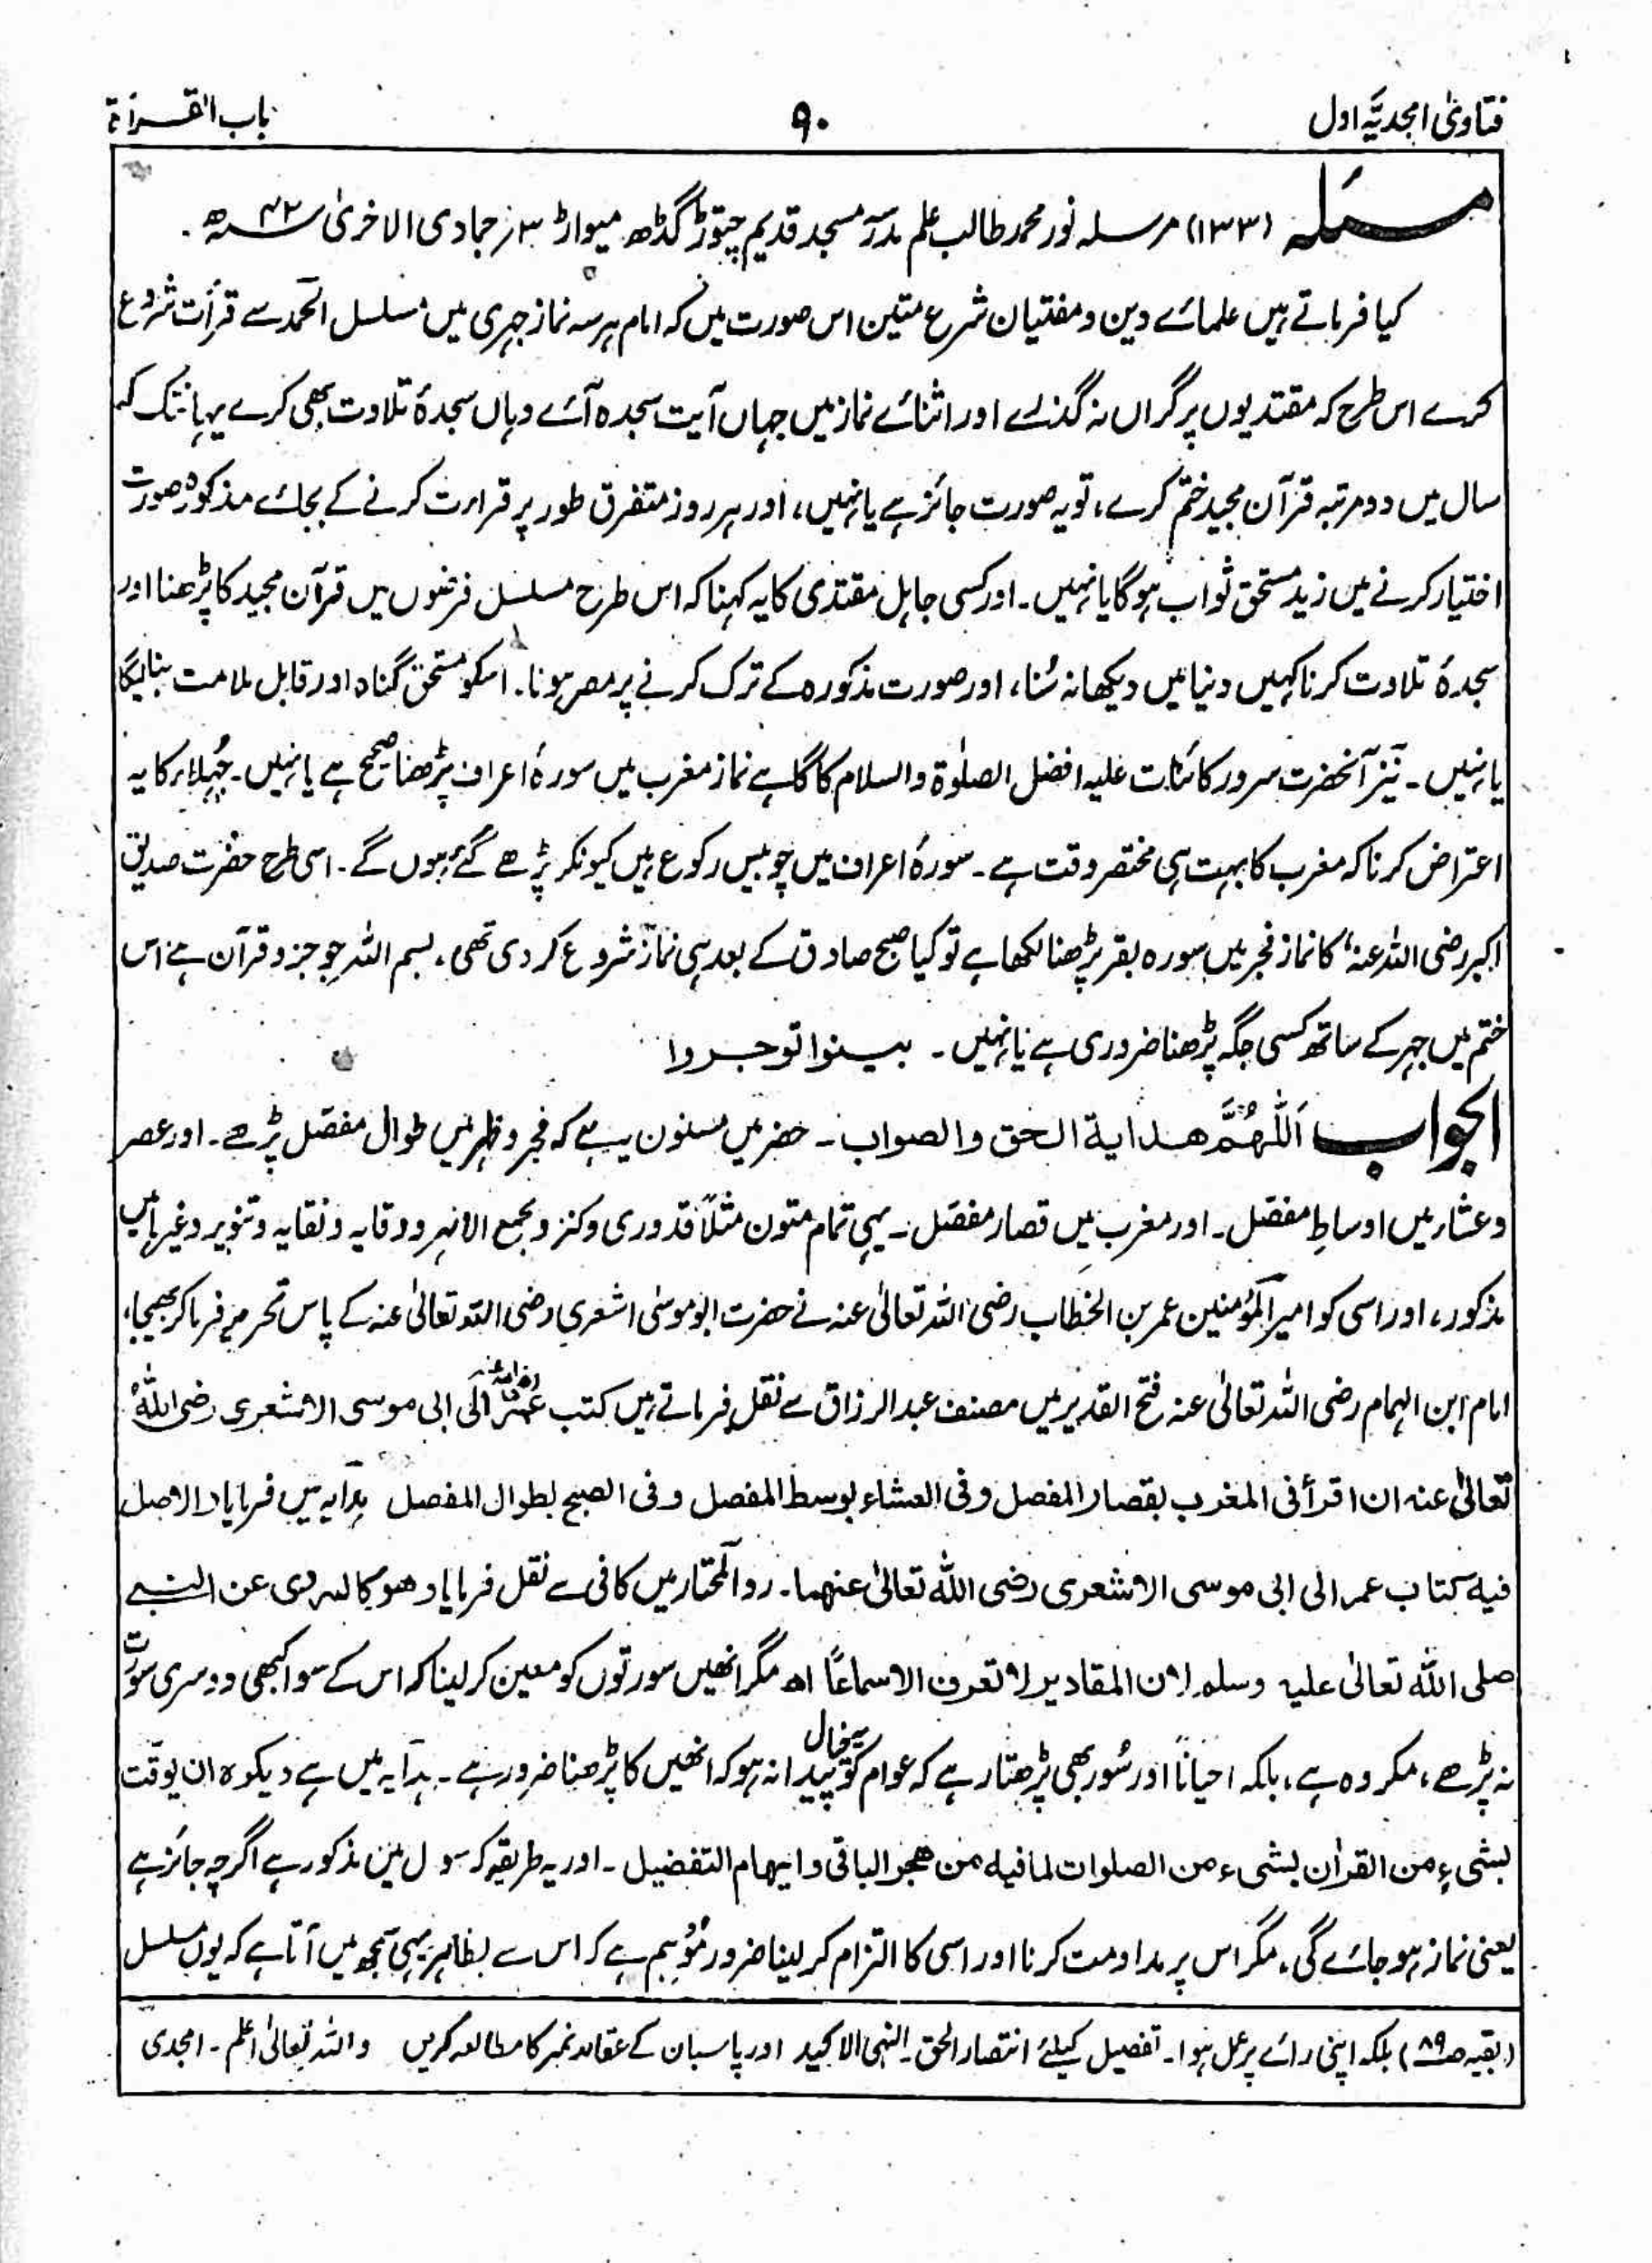 فتاویٰ امجدیہ اول
۹۰
باب القراءۃ
مسئلہ (۱۳۳) مرسلہ نور محمد طالب علم مدرسہ مسجد قدیم چتوڑ گڈھ میواڑ ۳ر جمادی الاخریٰ ۴۲ھ۔
کیا فرماتے ہیں علمائے دین ومفتیان شرع متین اس صورت میں کہ امام ہر سہ نماز جہری میں مسلسل الحمد سے قرأت شروع
کرے اس طرح کہ مقتدیوں پر گراں نہ گذرے اور اثنائے نماز میں جہاں آیت سجدہ آئے وہاں سجدۂ تلاوت بھی کرے یہانتک کہ
سال میں دو مرتبہ قرآن مجید ختم کرے، تو یہ صورت جائز ہے یا نہیں، اور ہر روز متفرق طور پر قراءت کرنے کے بجائے مذکورہ صورت
اختیار کرنے میں زید مستحق ثواب ہوگا یا نہیں۔ اور کسی جاہل مقتدی کا یہ کہنا کہ اس طرح مسلسل فرضوں میں قرآن مجید کا پڑھنا اور
سجدۂ تلاوت کرنا کہیں دنیا میں دیکھا نہ سُنا، اور صورت مذکورہ کے ترک کرنے پر مصر ہونا۔ اسکو مستحق گناہ اور قابل ملامت بنائیگا
یا نہیں۔ نیز آنحضرت سرور کائنات علیہ افضل الصلوٰۃ والسلام کا گاہے نماز مغرب میں سورۂ اعراف پڑھنا صحیح ہے یا نہیں۔ جُہلاء کا یہ
اعتراض کرنا کہ مغرب کا بہت ہی مختصر وقت ہے۔ سورۂ اعراف میں چوبیس رکوع ہیں کیونکر پڑھے گئے ہوں گے۔ اسی طرح حضرت صدیق
اکبر رضی اللہ عنہ' کا نماز فجر میں سورہ بقر پڑھنا لکھا ہے تو کیا صبح صادق کے بعد ہی نماز شروع کر دی تھی، بسم اللہ جو جزو قرآن ہے اس
ختم میں جہر کے ساتھ کسی جگہ پڑھنا ضروری ہے یا نہیں۔ بینوا توجروا
الجواب اَللّٰھُمَّ ھدایۃ الحق والصواب۔ حضر میں مسنون یہ ہے کہ فجر و ظہر میں طوال مفصّل پڑھے۔ اور عصر
وعشاء میں اوساطِ مفصّل۔ اور مغرب میں قصار مفصّل۔ یہی تمام متون مثلاً قدوری وکنز ومجمع الانہر و وقایہ ونقایہ وتنویر وغیرہا میں
مذکور، اور اسی کو امیر المؤمنین عمر بن الخطاب رضی اللہ تعالیٰ عنہ نے حضرت ابو موسیٰ اشعری رضی اللہ تعالیٰ عنہ کے پاس تحریر فرما کر بھیجا،
امام ابن الہمام رضی اللہ تعالیٰ عنہ فتح القدیر میں مصنف عبد الرزاق سے نقل فرماتے ہیں کتب عمر الی ابی موسی الاشعری رضی اللہ
تعالیٰ عنہ ان اقرأ فی المغرب بقصار المفصل وفی العشاء بوسط المفصل وفی الصبح بطوال المفصل ہدایہ میں فرمایا والاصل
فیہ کتاب عمر الی ابی موسی الاشعری رضی اللہ تعالیٰ عنھما۔ رد المحتار میں کافی سے نقل فرمایا وھو کالمروی عن النبی
صلی اللہ تعالیٰ علیہ وسلم لان المقادیر لا تعرف الا سماعًا اھ مگر انھیں سورتوں کو معین کر لینا کہ اس کے سوا کبھی دوسری سورت
نہ پڑھے، مکروہ ہے، بلکہ احیاناً اور سُور بھی پڑھتا رہے کہ عوام کو یہ خیال پیدا نہ ہو کہ انھیں کا پڑھنا ضرور ہے۔ ہدایہ میں ہے ویکرہ ان یوقت
بشیءٍ من القراٰن بشیء من الصلوات لما فیہ من ھجر الباقی وایھام التفضیل۔ اور یہ طریقہ کہ سوال میں مذکور ہے اگرچہ جائز ہے
یعنی نماز ہو جائے گی، مگر اس پر مداومت کرنا اور اسی کا التزام کر لینا ضرور مُوہِم ہے کہ اس سے بظاہر یہی سمجھ میں آتا ہے کہ یوں مسلسل
(بقیہ صـ ۸۹) بلکہ اپنی رائے پر عمل ہوا۔ تفصیل کیلئے انتصار الحق۔ النہی الاکید اور پاسبان کے عقائد نمبر کا مطالعہ کریں واللہ تعالیٰ اعلم۔ امجدی